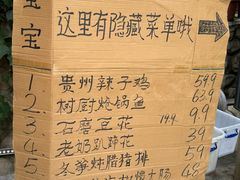 宝
宝
这里有隐藏菜单哦
1. 贵州辣子鸡 59.9
2. 树厨烧锅鱼 63.9
3. 石磨豆花 19.9 9.9
4. 老奶趴野花 39
5. 冬笋炒腊猪排 59